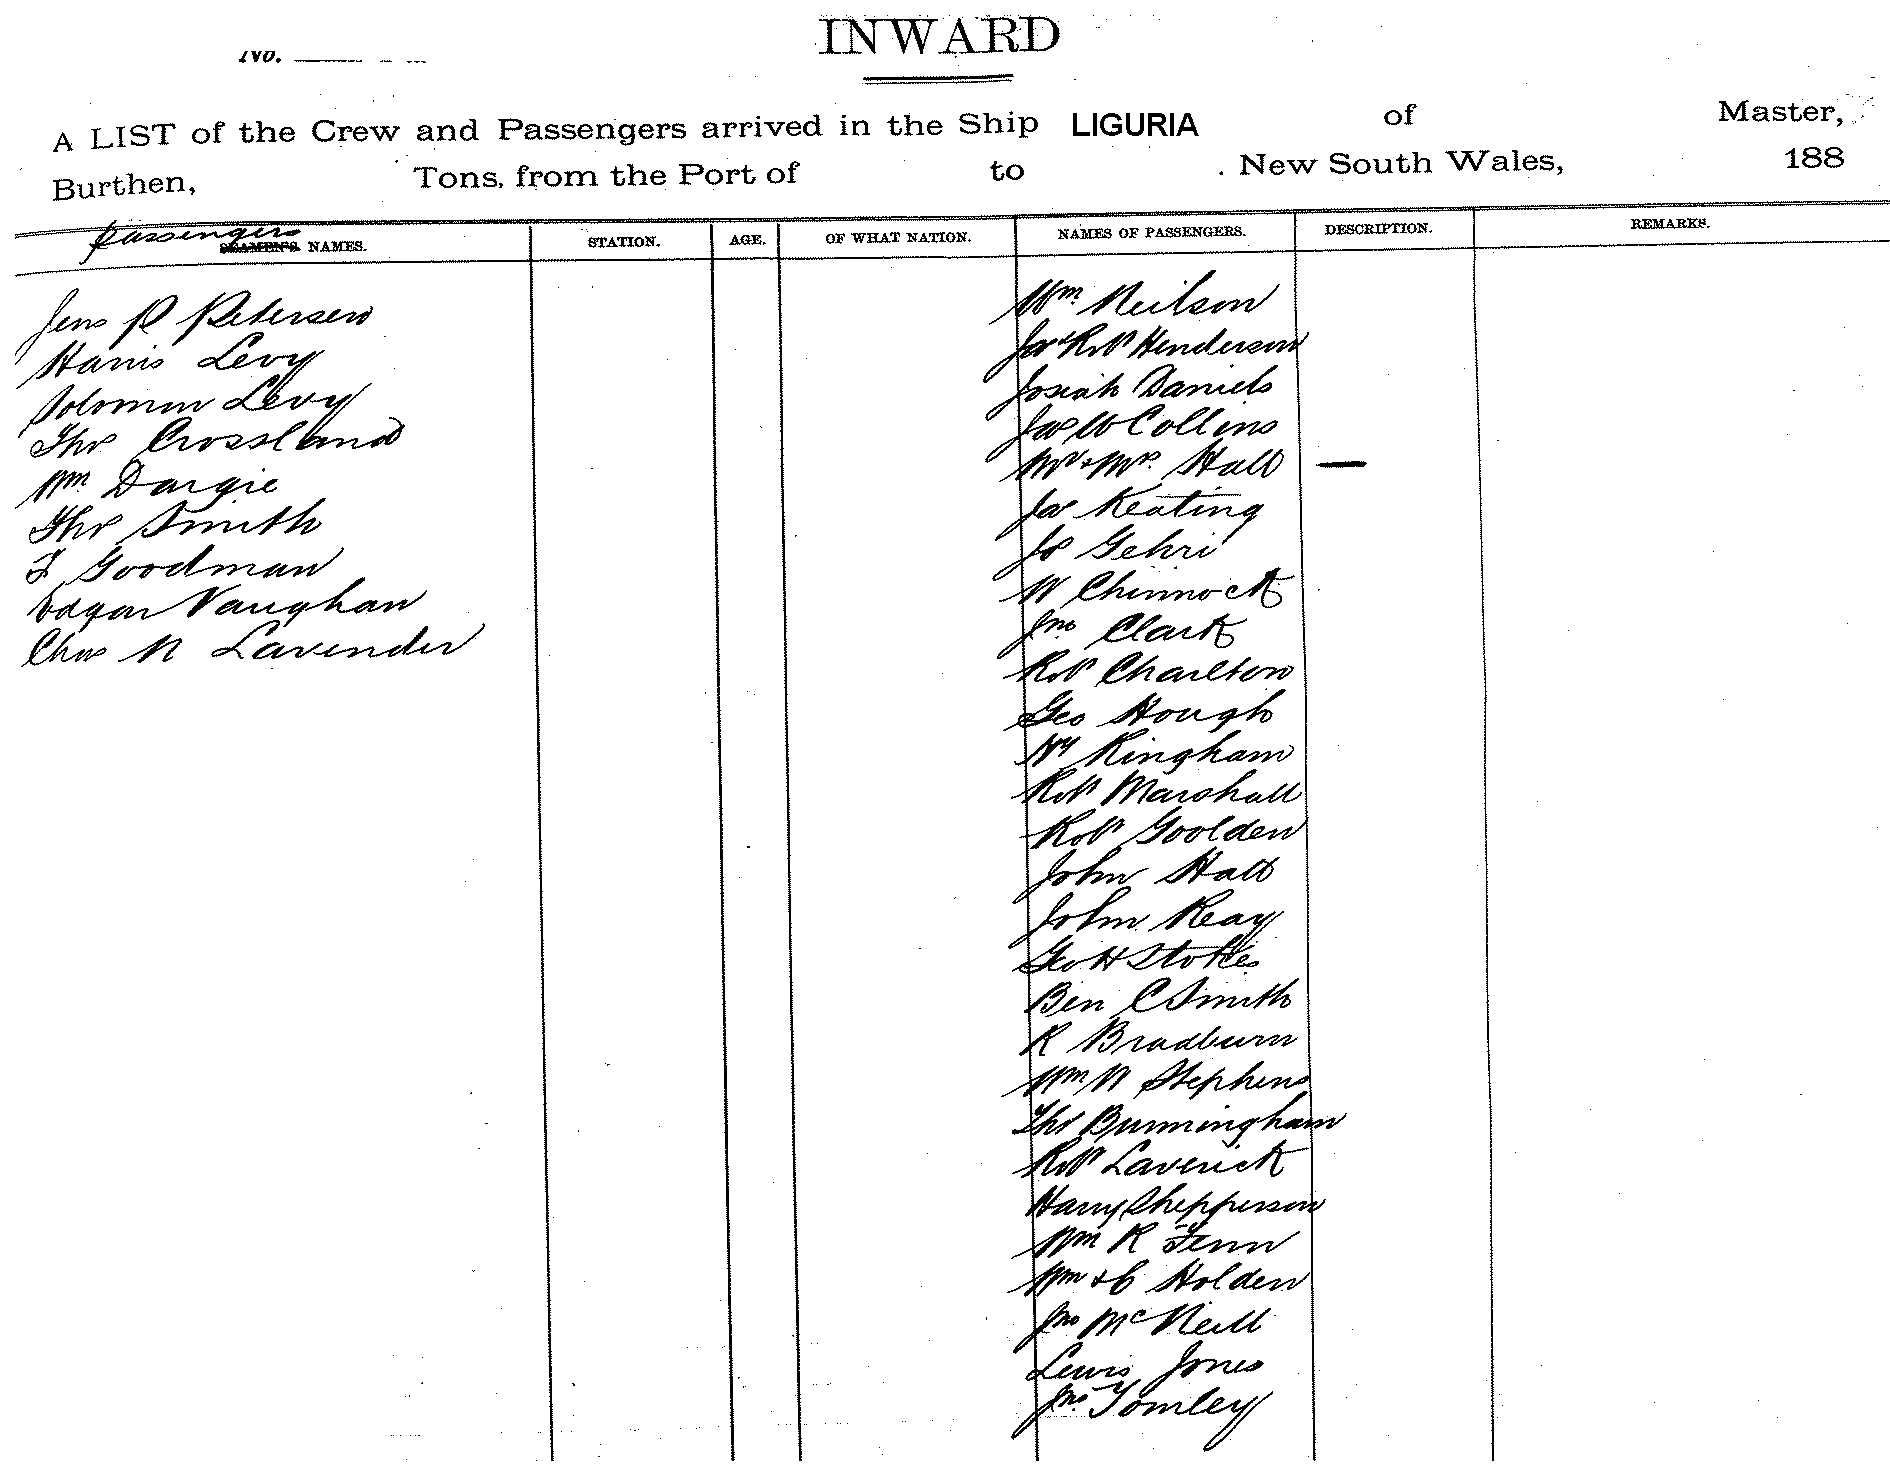 INWARD
No.
A LIST of the Crew and Passengers arrived in the Ship LIGURIA of Master,
Burthen, Tons, from the Port of to New South Wales, 188
Passengers
SEAMEN'S NAMES. STATION. AGE. OF WHAT NATION. NAMES OF PASSENGERS. DESCRIPTION. REMARKS.
Jens P Petersen
Harris Levy
Solomon Levy
Thos Crossland
Wm Dargie
Thos Smith
F Goodman
Edgar Vaughan
Chas N Lavender
Wm Neilson
Jas & Robt Henderson
Josiah Daniels
Jas W Collins
Mr & Mrs Hall —
Jas Keating
Js Gehri
W Chinnock
Jno Clark
Robt Charlton
Geo Hough
Hy Kingham
Robt Marshall
Robt Goolden
John Hall
John Reay
Geo H Stokes
Ben C Smith
R Bradburn
Wm N Stephens
Thos Burmingham
Robt Laverick
Harry Shepperson
Wm R Fenn
Wm & C Holden
Jno McNeill
Lewis Jones
Jno Tomley